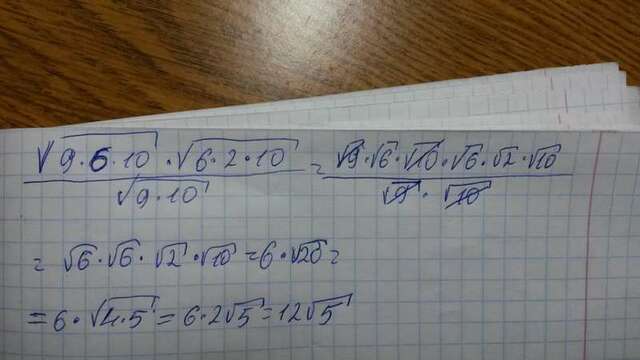 √(9·6·10) · √(6·2·10) / √(9·10) = √9·√6·√10·√6·√2·√10 / √9 · √10
= √6·√6·√2·√10 = 6·√20 =
= 6·√(4·5) = 6·2√5 = 12√5